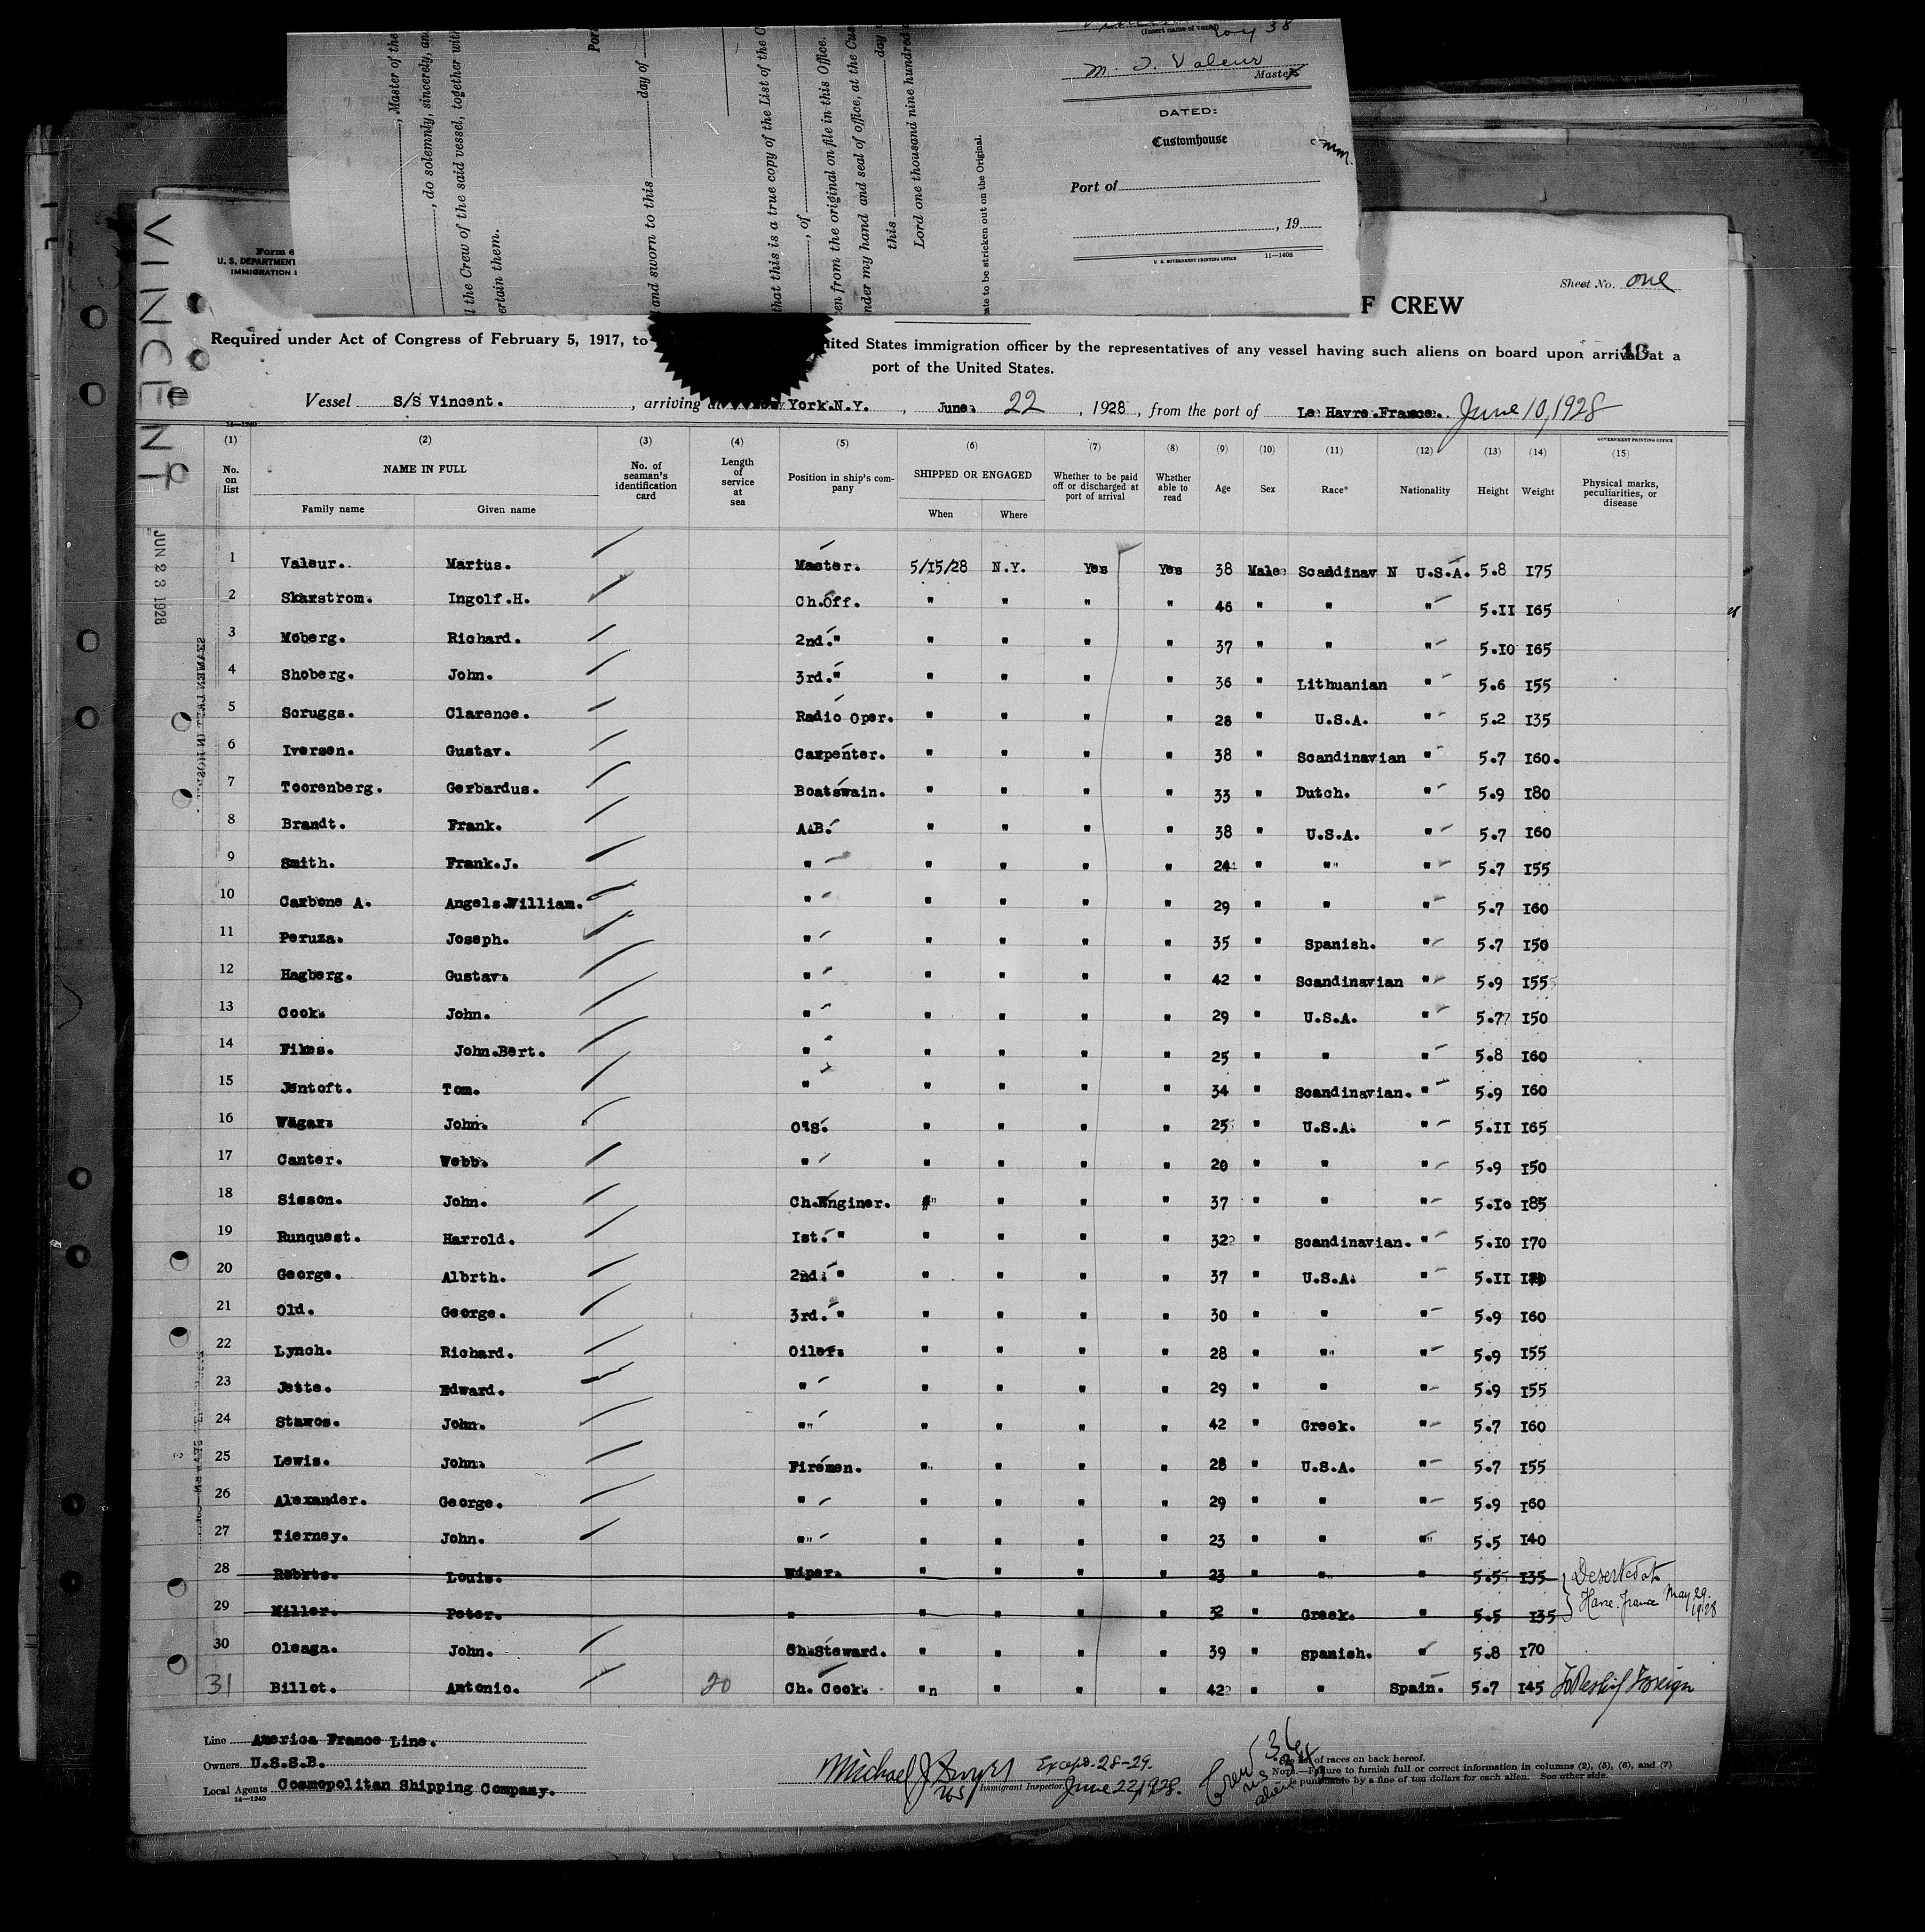 (Insert name of vessel)
M. J. Valeur
Master
DATED:
Customhouse
Port of
, 19
U. S. GOVERNMENT PRINTING OFFICE 11—1408
, Master of the
, do solemnly, sincerely, and
l the Crew of the said vessel, together with
ertain them.
Port
day of
and sworn to this
that this is a true copy of the List of the C
, of
en from the original on file in this Office.
nder my hand and seal of office, at the Cus
this day
Lord one thousand nine hundred
ate to be stricken out on the Original.
VINCENT
JUN 23 1928
Form 6
U. S. DEPARTMENT
IMMIGRATION
Sheet No. one
F CREW
Required under Act of Congress of February 5, 1917, to nited States immigration officer by the representatives of any vessel having such aliens on board upon arrival at a
port of the United States.
Vessel S/S Vincent. , arriving at York.N.Y. , June. 22 , 1928 , from the port of Le Havre.France. June 10, 1928
14—1240 GOVERNMENT PRINTING OFFICE
(1) (2) (3) (4) (5) (6) (7) (8) (9) (10) (11) (12) (13) (14) (15)
No. on list NAME IN FULL Family name Given name No. of seaman's identification card Length of service at sea Position in ship's company SHIPPED OR ENGAGED When Where Whether to be paid off or discharged at port of arrival Whether able to read Age Sex Race* Nationality Height Weight Physical marks, peculiarities, or disease
1 Valeur. Marius. Master. 5/15/28 N.Y. Yes Yes 38 Male Scandinav N U.S.A. 5.8 175
2 Skarstrom. Ingolf.H. Ch.Off. " " " " 46 " " " 5.11 165
3 Moberg. Richard. 2nd." " " " " 37 " " " 5.10 165
4 Shoberg. John. 3rd." " " " " 36 " Lithuanian " 5.6 155
5 Scruggs. Clarence. Radio Oper. " " " " 28 " U.S.A. " 5.2 135
6 Iversen. Gustav. Carpenter. " " " " 38 " Scandinavian " 5.7 160.
7 Toorenberg. Gerbardus. Boatswain. " " " " 33 " Dutch. " 5.9 180
8 Brandt. Frank. A.B. " " " " 38 " U.S.A. " 5.7 160
9 Smith. Frank.J. " " " " " 24 " " " 5.7 155
10 Carbone A. Angels.William. " " " " " 29 " " " 5.7 160
11 Peruza. Joseph. " " " " " 35 " Spanish. " 5.7 150
12 Hagberg. Gustav. " " " " " 42 " Scandinavian " 5.9 155
13 Cook. John. " " " " " 29 " U.S.A. " 5.7 150
14 Fikes. John.Bert. " " " " " 25 " " " 5.8 160
15 Jentoft. Tom. " " " " " 34 " Scandinavian. " 5.9 160
16 Wagar. John. O.S. " " " " 25 " U.S.A. " 5.11 165
17 Canter. Webb. " " " " " 20 " " " 5.9 150
18 Sisson. John. Ch.Enginer. " " " " 37 " " " 5.10 185
19 Runquest. Harrold. 1st. " " " " " 32 " Scandinavian. " 5.10 170
20 George. Albrth. 2nd. " " " " " 37 " U.S.A. " 5.11
21 Old. George. 3rd. " " " " " 30 " " " 5.9 160
22 Lynch. Richard. Oiler. " " " " 28 " " " 5.9 155
23 Jette. Edward. " " " " " 29 " " " 5.9 155
24 Stawos. John. " " " " " 42 " Greek. " 5.7 160
25 Lewis. John. Firemen. " " " " 28 " U.S.A. " 5.7 155
26 Alexander. George. " " " " " 29 " " " 5.9 160
27 Tierney. John. " " " " " 23 " " " 5.5 140
28 Robrts. Louis. Wiper. " " " " 23 " " " 5.5 135 Deserted at
29 Miller. Peter. " " " " " 32 " Greek. " 5.5 135 Havre. France May 29. 1928
30 Oleaga. John. Ch.Steward. " " " " 39 " Spanish. " 5.8 170
31 Billot. Antonio. 20 Ch. Cook. " " " " 42 " " Spain. 5.7 145 To Reship Foreign
Line America France Line.
Owners U.S.S.B.
Local Agents Cosmopolitan Shipping Company.
14—1240
Michael J. Except. 28-29.
Immigrant Inspector. June 22, 1928.
Crew 36
* See list of races on back hereof.
NOTE.—Failure to furnish full or correct information in columns (2), (5), (6), and (7)
is punishable by a fine of ten dollars for each alien. See other side.